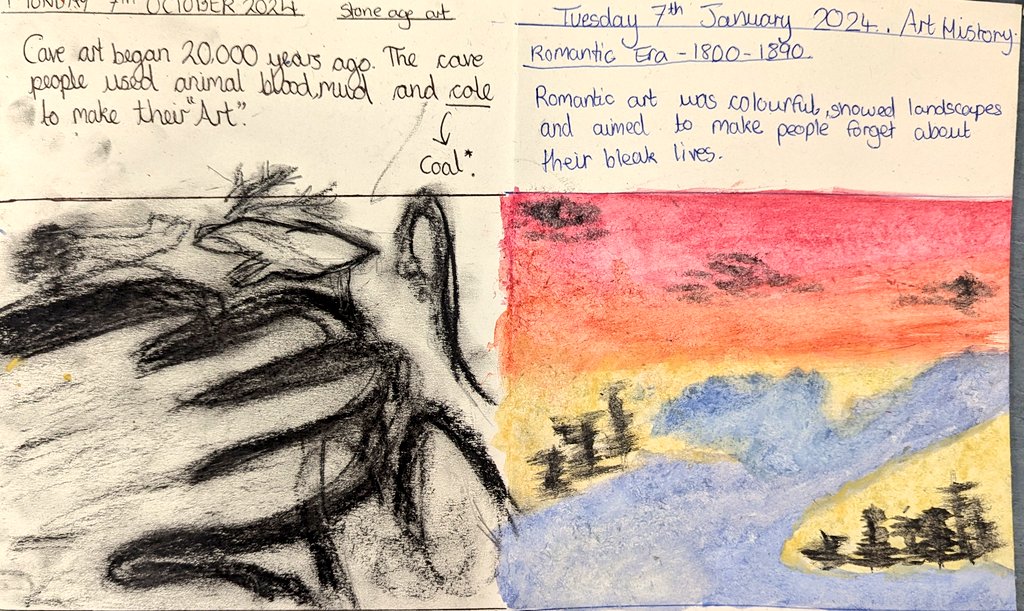 MONDAY 7th OCTOBER 2024
Stone age art
Cave art began 20,000 years ago. The cave
people used animal blood, mud and cole
to make their "Art".
Coal*.
Tuesday 7th January 2024. Art History.
Romantic Era - 1800-1890.
Romantic art was colourful, showed landscapes
and aimed to make people forget about
their bleak lives.